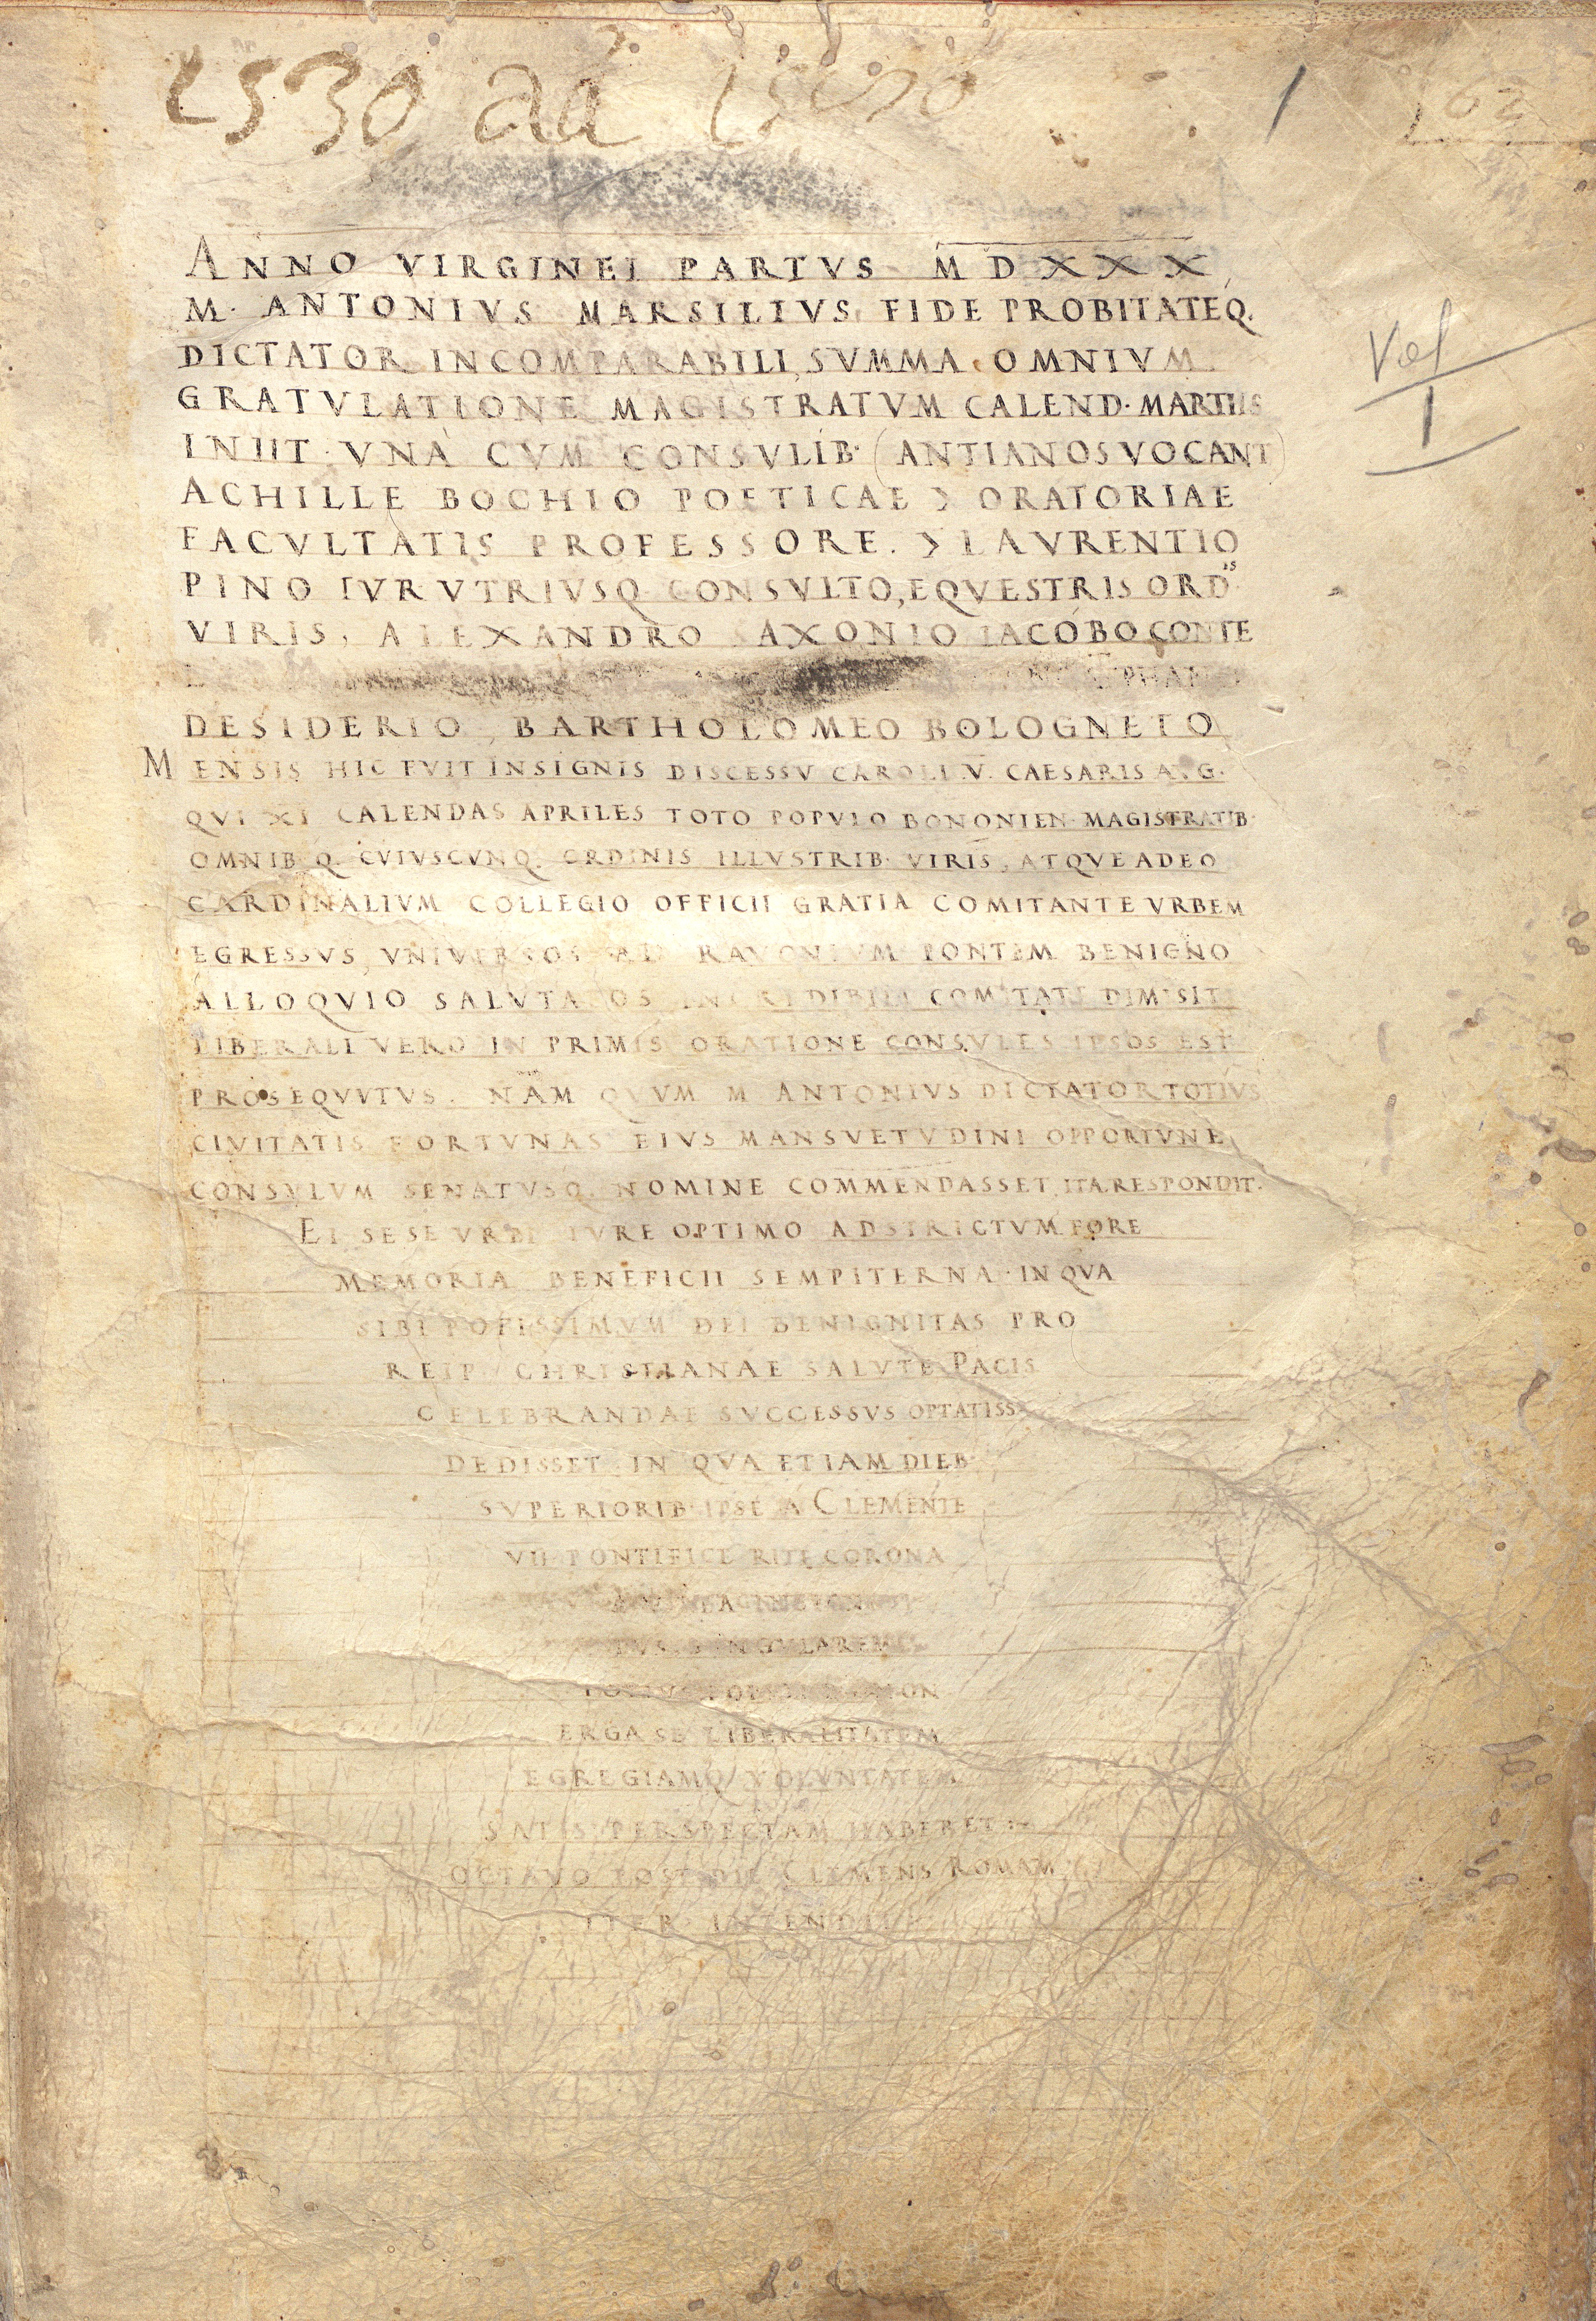 1530 ad
1
62
Vol
1
ANNO VIRGINEI PARTVS MDXXX
M. ANTONIVS MARSILIVS FIDE PROBITATEQ.
DICTATOR INCOMPARABILI, SVMMA OMNIVM
GRATVLATIONE MAGISTRATVM CALEND. MARTIIS
INIIT VNA CVM CONSVLIB. (ANTIANOS VOCANT)
ACHILLE BOCHIO POETICAE & ORATORIAE
FACVLTATIS PROFESSORE. & LAVRENTIO
PINO IVR VTRIVSQ CONSVLTO, EQVESTRIS ORDIS
VIRIS, ALEXANDRO AXONIO IACOBO CONTE
DESIDERIO, BARTHOLOMEO BOLOGNETO
MENSIS HIC FVIT INSIGNIS DISCESSV CAROLI V. CAESARIS AVG.
QVI XI CALENDAS APRILES TOTO POPVLO BONONIEN. MAGISTRATIB.
OMNIB Q. CVIVSCVNQ. ORDINIS ILLVSTRIB. VIRIS, ATQVE ADEO
CARDINALIVM COLLEGIO OFFICII GRATIA COMITANTE VRBEM
EGRESSVS, VNIVERSOS AD PONTEM BENIGNO
ALLOQVIO SALVTATOS INCREDIBILI COMITATE DIMISIT
LIBERALI VERO IN PRIMIS ORATIONE CONSVLES IPSOS EST
PROSEQVVTVS. NAM QVVM M ANTONIVS DICTATOR TOTIVS
CIVITATIS FORTVNAS EIVS MANSVETVDINI OPPORTVNE
CONSVLVM SENATVSQ. NOMINE COMMENDASSET, ITA RESPONDIT.
EI SESE VRBI IVRE OPTIMO ADSTRICTVM FORE
MEMORIA BENEFICII SEMPITERNA. IN QVA
SIBI POTISSIMVM DEI BENIGNITAS PRO
REIP CHRISTIANAE SALVTE PACIS
CELEBRANDAE SVCCESSVS OPTATISS
DEDISSET. IN QVA ETIAM DIEB.
SVPERIORIB. IPSE A CLEMENTE
VII PONTIFICE RITE CORONA
TVS SINGVLAREM
ERGA SE LIBERALITATEM
EGREGIAMQ VOLVNTATEM
SATIS PERSPECTAM HABERET:~
OCTAVO POST DIE CLEMENS ROMAM
ITER INTENDIT